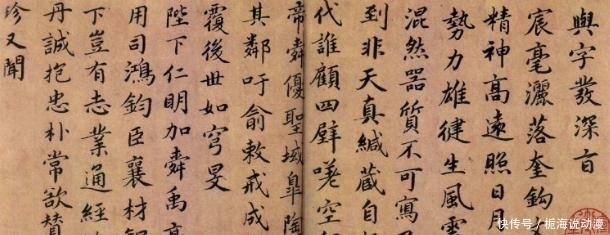 與字發深旨
宸毫灑落奎鈎
精神高遠照日月
勢力雄健生風雲
混然器質不可寫
到非天真緘藏自
代誰顧四壁嗟空
帝舜優聖域皐陶
其鄰吁俞敕戒成
覆後世如穹旻
陛下仁明加舜禹
用司鴻鈞臣襄材
下豈有志業通經
丹誠抱忠朴常欲賛
珍又聞
快传号/栀海说动漫